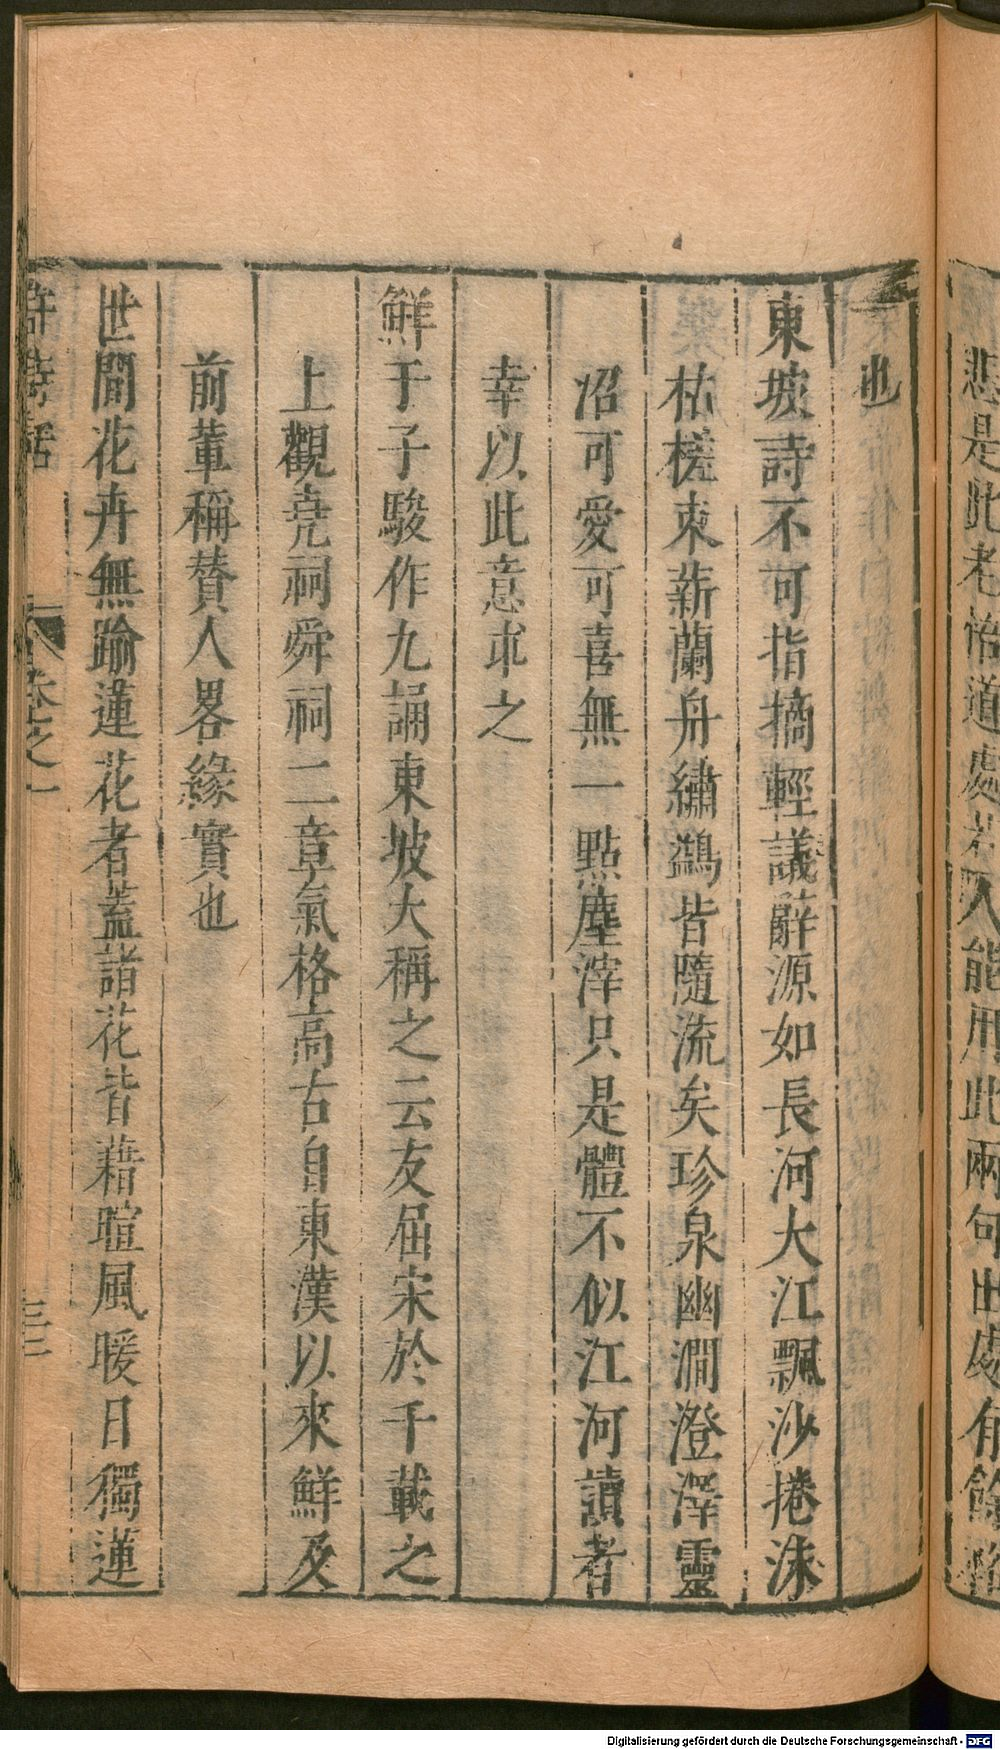 悲是此老悟道處若人能用此兩句出處有餘裕
也
東坡詩不可指摘輕議辭源如長河大江飄沙捲沫
枯槎束薪蘭舟繡鷁皆隨流矣珍泉幽澗澄澤靈
沼可愛可喜無一點塵滓只是體不似江河讀者
幸以此意求之
鮮于子駿作九誦東坡大稱之云友屈宋於千載之
上觀堯祠舜祠二章氣格高古自東漢以來鮮及
前輩稱贊人畧緣實也
世間花卉無踰蓮花者蓋諸花皆藉暄風暖日獨蓮
許詩話
卷之一
三二
Digitalisierung gefördert durch die Deutsche Forschungsgemeinschaft - DFG